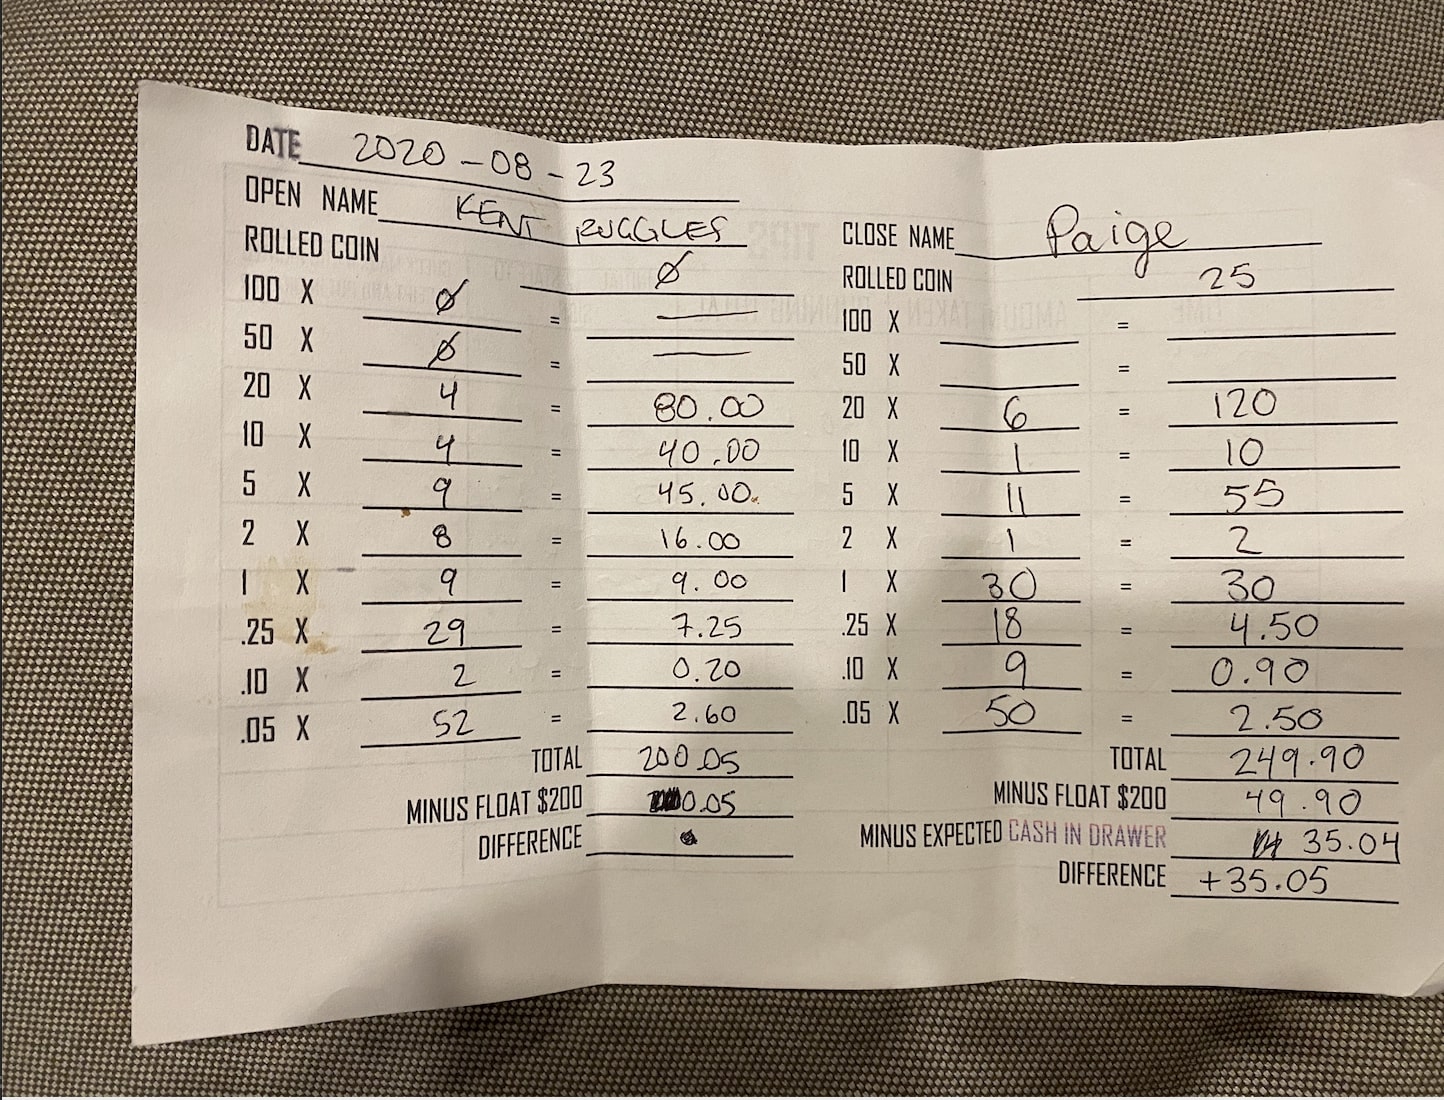 DATE 2020-08-23
OPEN NAME KENT RUGGLES
ROLLED COIN Ø
100 X Ø = —
50 X Ø = —
20 X 4 = 80.00
10 X 4 = 40.00
5 X 9 = 45.00
2 X 8 = 16.00
1 X 9 = 9.00
.25 X 29 = 7.25
.10 X 2 = 0.20
.05 X 52 = 2.60
TOTAL 200.05
MINUS FLOAT $200 0.05
DIFFERENCE
CLOSE NAME Paige
ROLLED COIN 25
100 X =
50 X =
20 X 6 = 120
10 X 1 = 10
5 X 11 = 55
2 X 1 = 2
1 X 30 = 30
.25 X 18 = 4.50
.10 X 9 = 0.90
.05 X 50 = 2.50
TOTAL 249.90
MINUS FLOAT $200 49.90
MINUS EXPECTED CASH IN DRAWER 35.04
DIFFERENCE +35.05